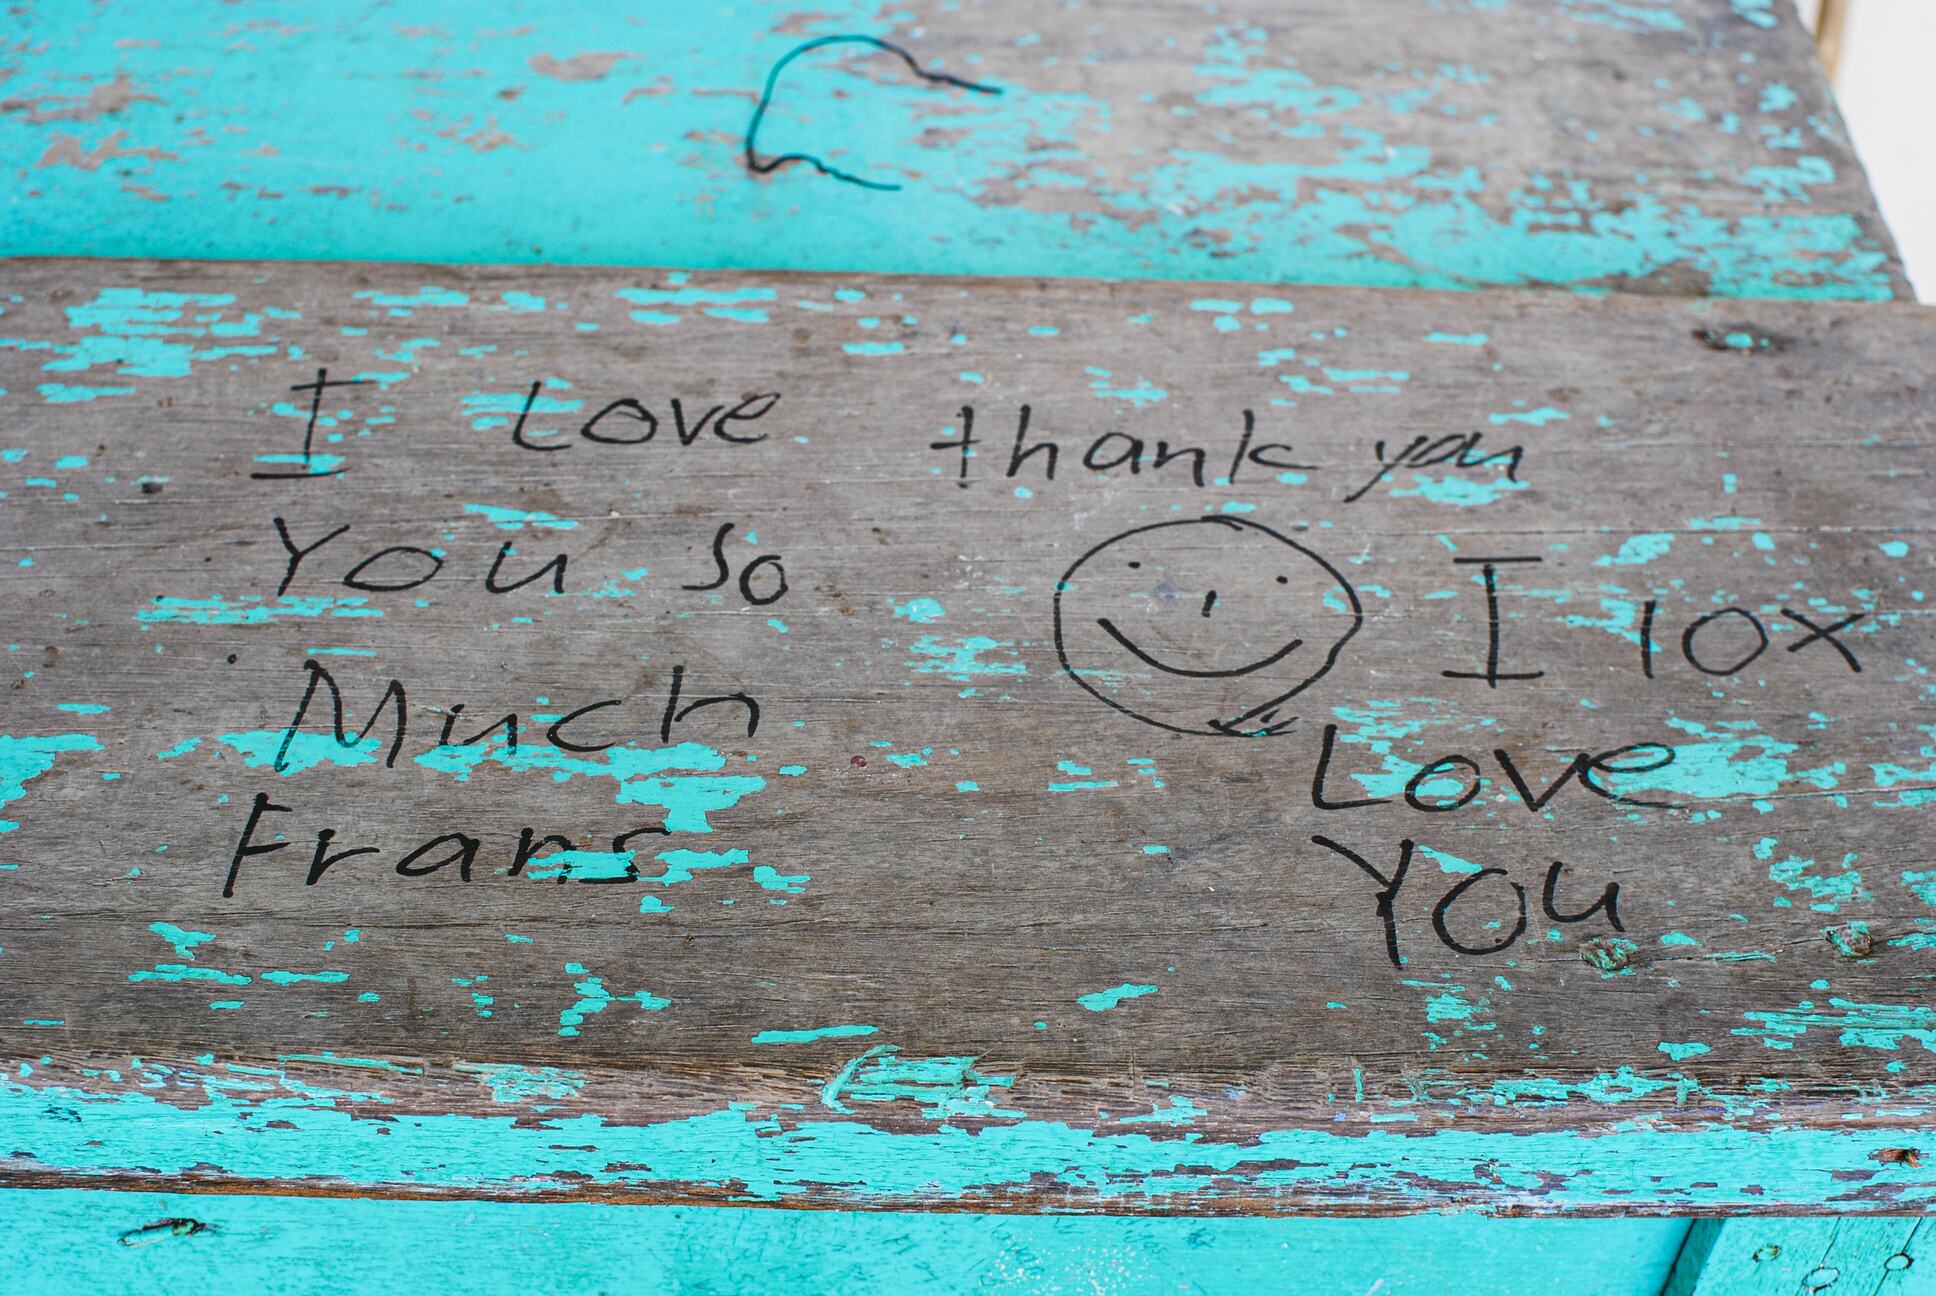 I Love
You so
Much
Frans
thank you
I 10x
Love
You